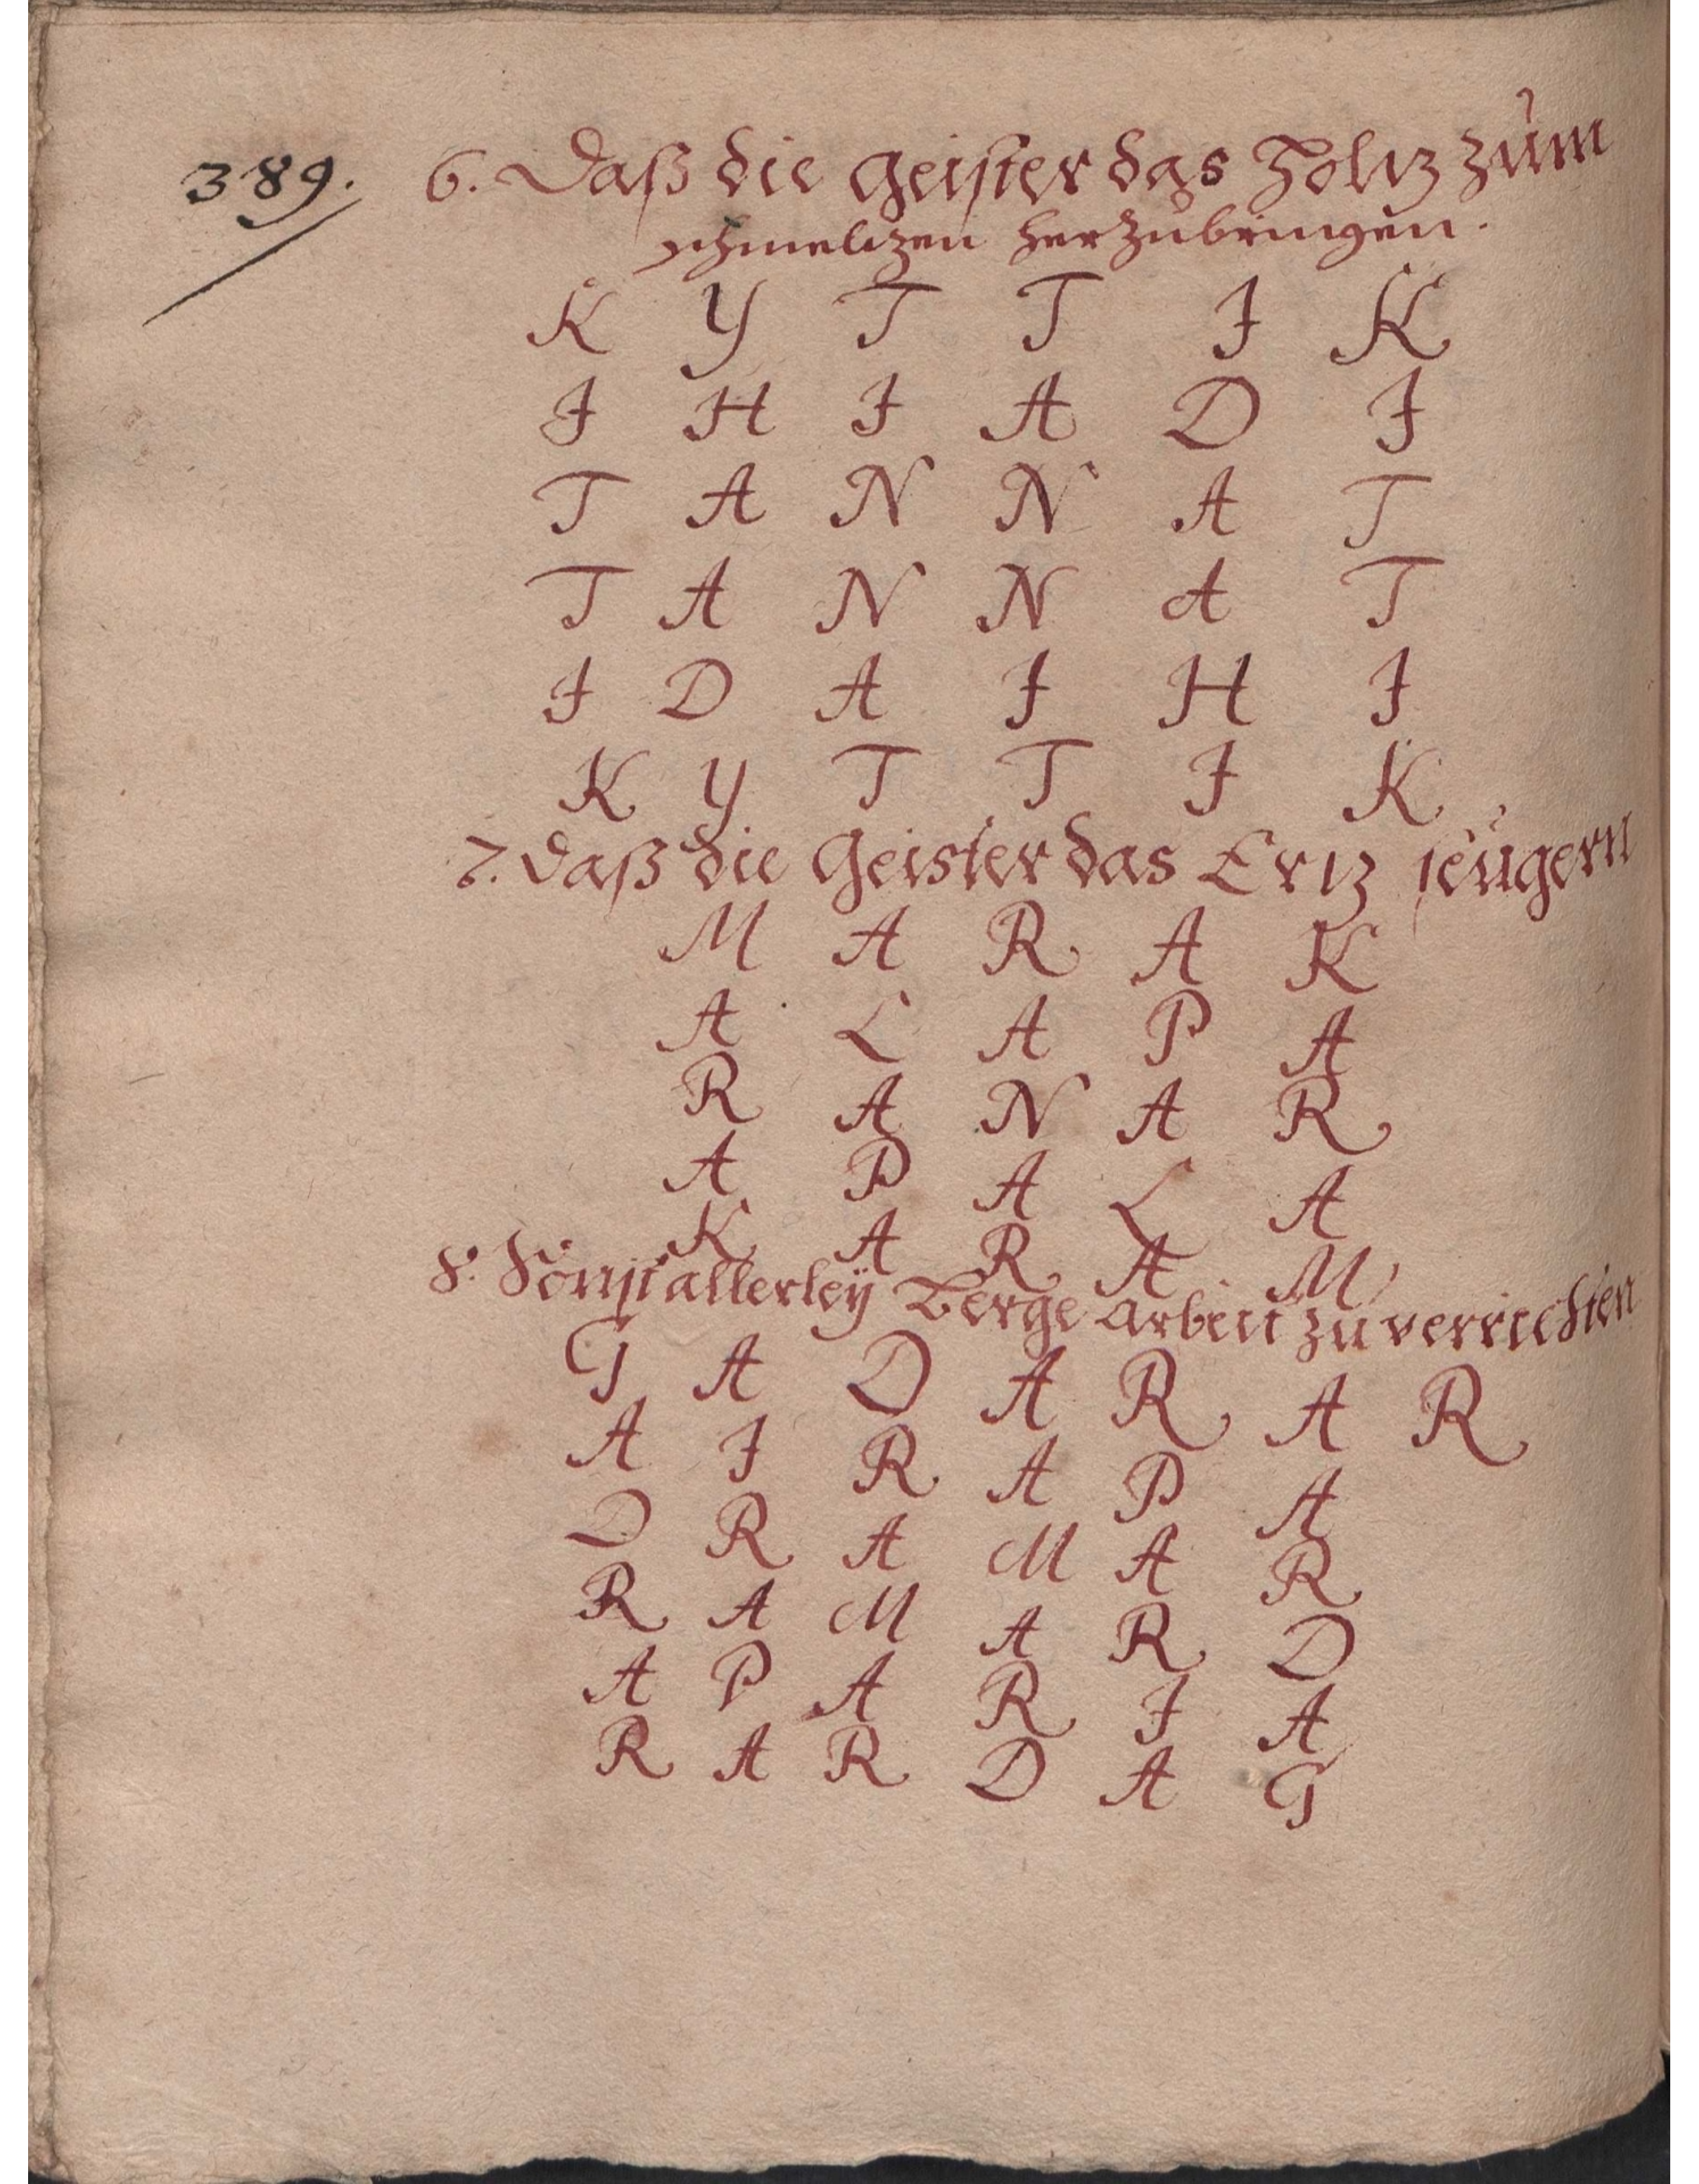 389. 6. Daß die Geister das Holtz zum
schmeltzen herzubringen.
K Y T T I K
I H I A D I
T A N N A T
T A N N A T
I D A I H I
K Y T T I K
7. Daß die Geister das Ertz seügern
M A R A K
A L A P A
R A N A R
A P A L A
K A R A M
8. Sonst allerleÿ Berge Arbeit zu verrichten
G A D A R A R
A I R A P A
D R A M A R
R A M A R D
A P A R I A
R A R D A G